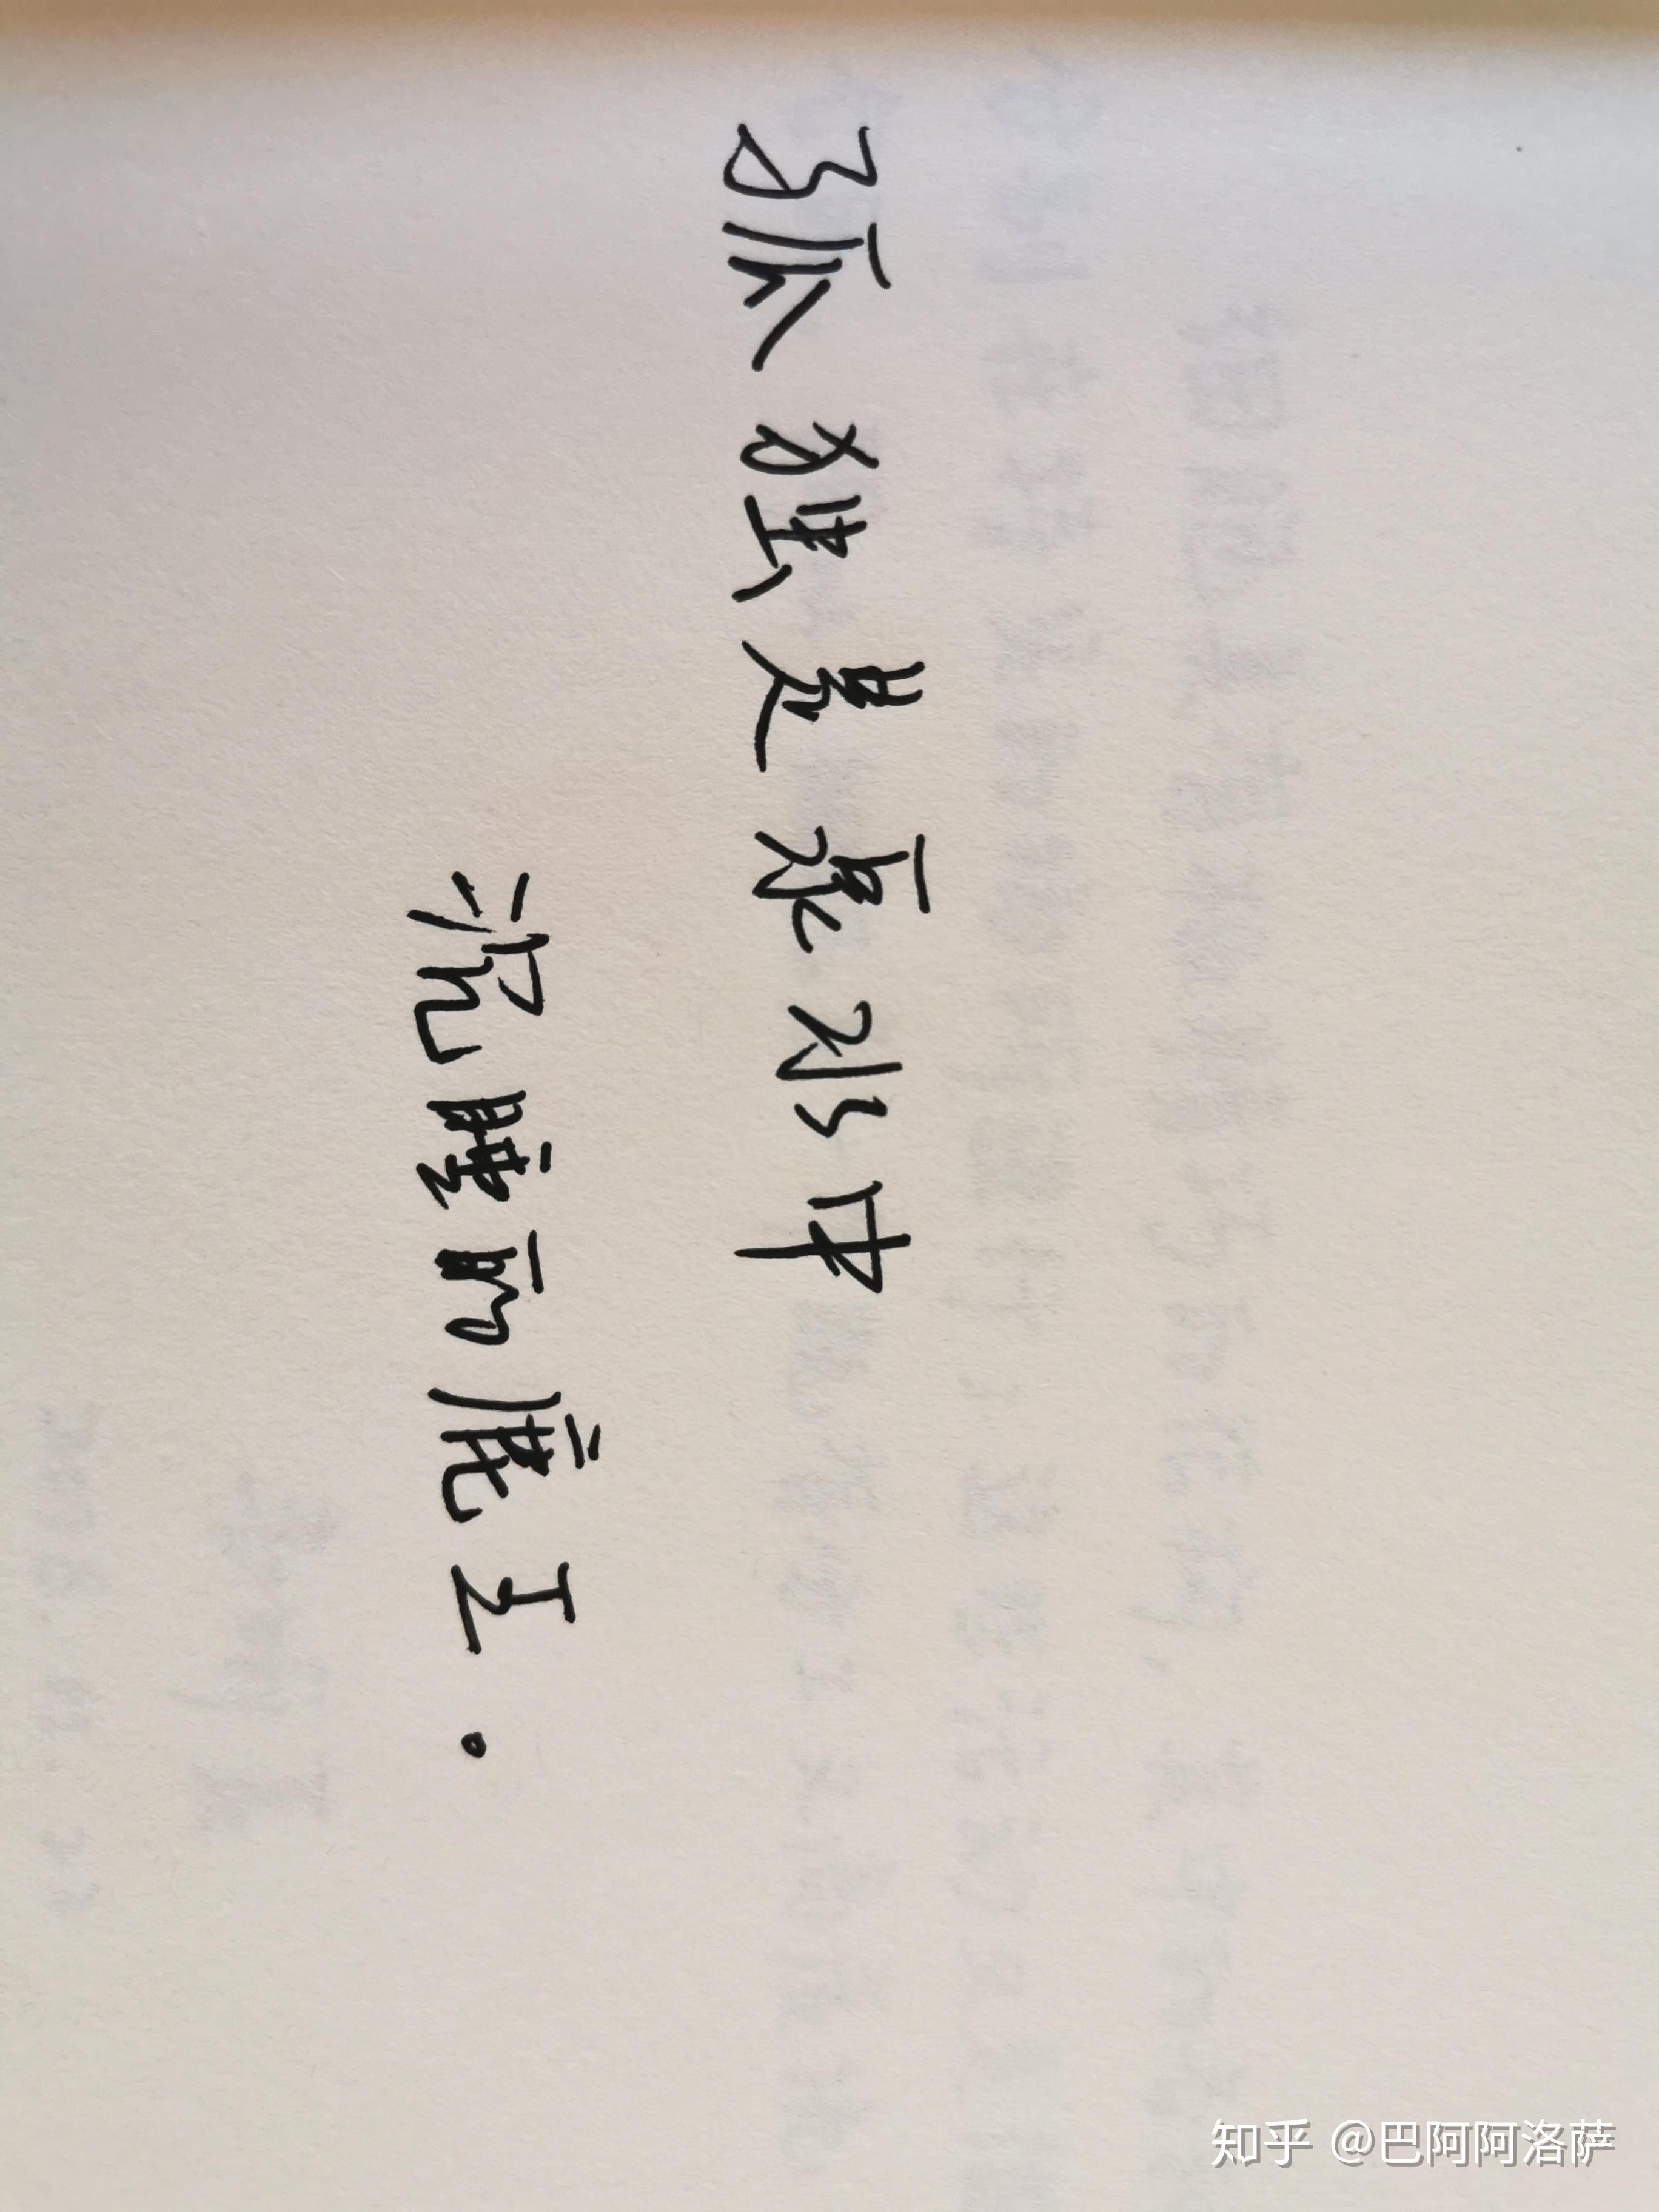 孤独是泉水中
沉睡的鹿王.
知乎 @巴阿阿洛萨